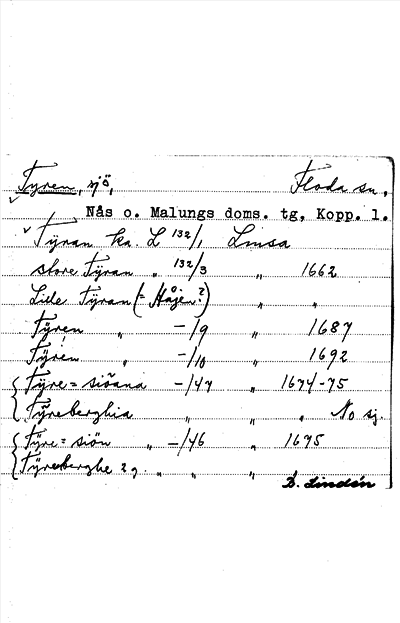 Tyren, sjö, Floda sn.
Nås o. Malungs doms. tg, Kopp. l.
Tÿran ka. L 132/1 Limsa
store Tÿran " 132/3 " 1662
Lille Tÿran (= Håjen?) " "
Tÿren " -/9 " 1687
Tÿrén " -/10 " 1692
Tÿre= siöana -/47 " 1674-75
Tÿreberghia " " " No sj.
Tÿre= siön " -/46 " 1675
Tÿreberghe 2 g. " " "
B. Lindén